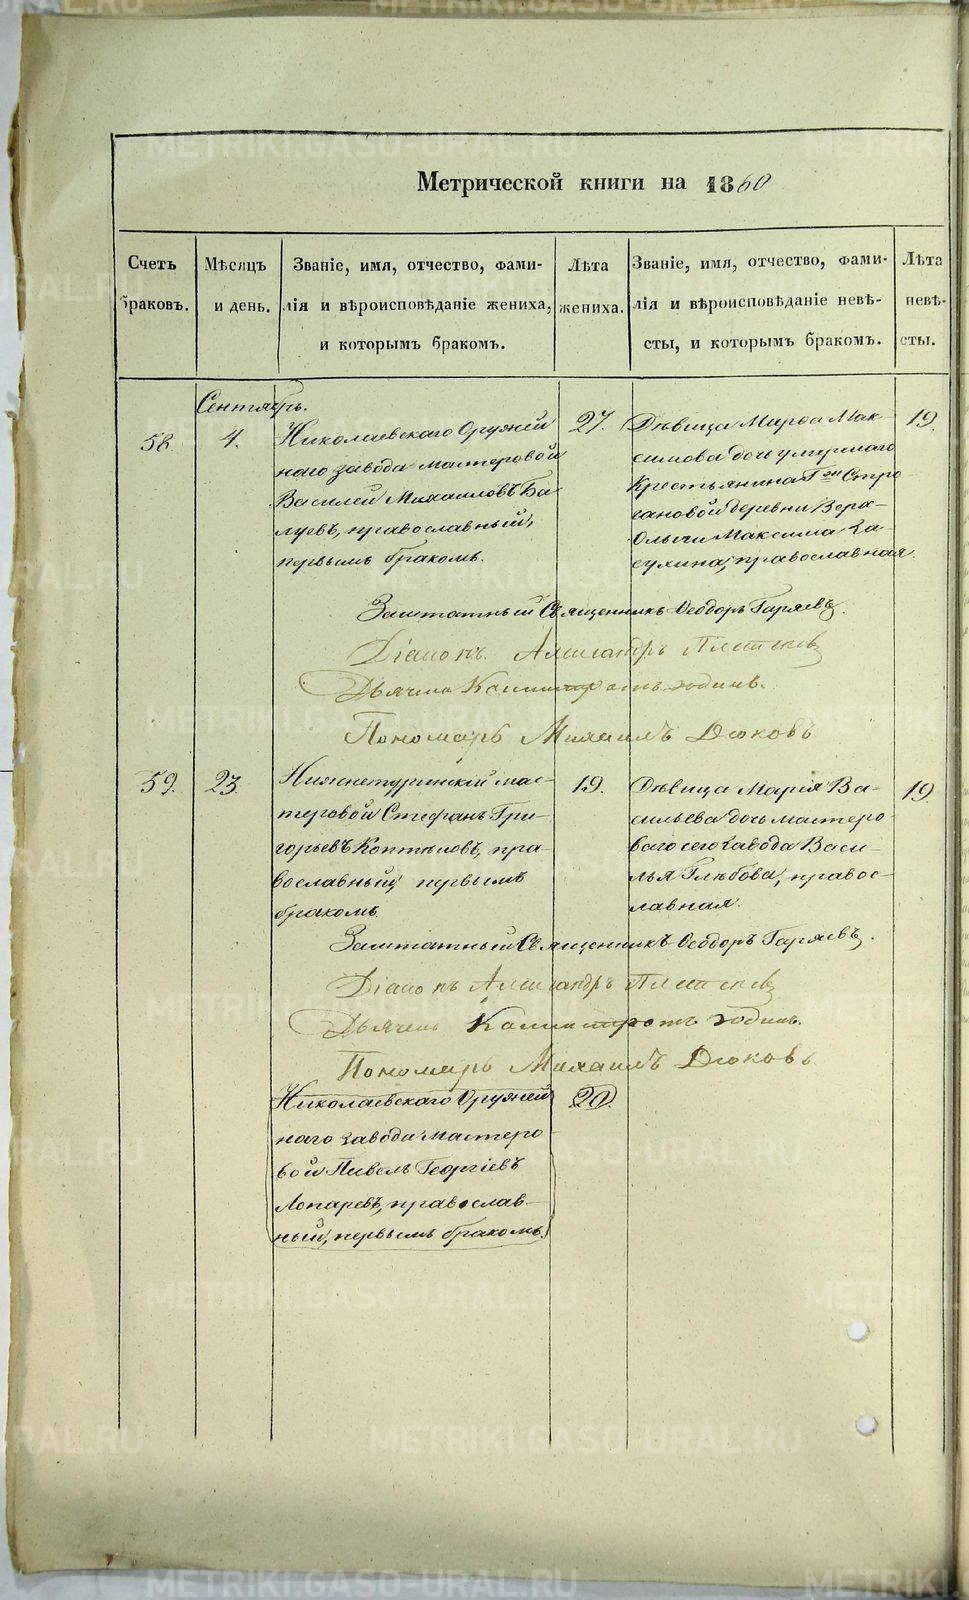 Метрической книги на 1860
Счетъ
браковъ.
Мѣсяцъ
и день.
Званіе, имя, отчество, фами-
лія и вѣроисповѣданіе жениха,
и которымъ бракомъ.
Лѣта
жениха.
Званіе, имя, отчество, фами-
лія и вѣроисповѣданіе невѣ-
сты, и которымъ бракомъ.
Лѣта
невѣ-
сты.
Сентябрь.
58
4.
Николаевскаго Оружей
наго завода мастеровой
Василей Михаиловъ Ба
луевъ, православный,
первымъ бракомъ.
27.
Дѣвица Марѳа Мак-
симова дочь умершаго
Крестьянина Гжи Стро
гановой деревни Верх-
Ольычи Максима За-
сухина, православная
19
Заштатный Священникъ Ѳеодоръ Гаряевъ.
Діаконъ Александръ
Дьячекъ Калистратъ Зодинъ.
Пономарь Михаилъ Дюковъ
59.
23.
Нижнетуринскій мас-
теровой Стефанъ Гри-
горьевъ Коптѣловъ, пра-
вославный, первымъ
бракомъ.
19.
Дѣвица Марія Ва-
сильева дочь мастеро-
ваго сего Завода Васи-
лья Глѣбова, правос-
лавная.
19
Заштатный Священникъ Ѳеодоръ Гаряевъ.
Діаконъ Александръ
Дьячекъ Калистратъ Зодинъ.
Пономарь Михаилъ Дюковъ
Николаевскаго Оружей
наго завода мастеро-
вой Павелъ Георгіевъ
Лопаревъ, православ-
ный, первымъ бракомъ.
20.
METRIKI.GASO-URAL.RU